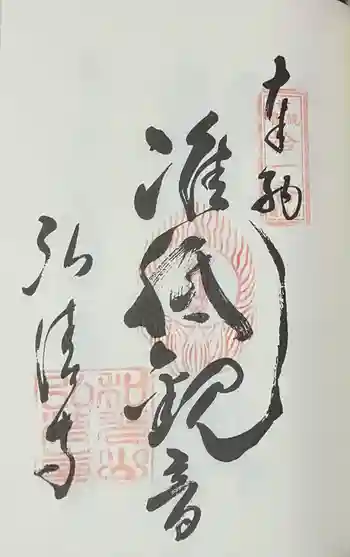 奉納
准胝観音
弘清寺